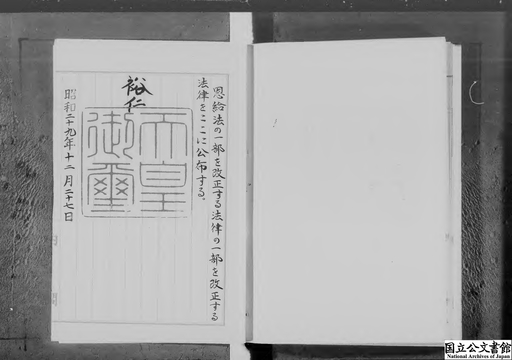 恩給法の一部を改正する法律の一部を改正する
法律をここに公布する。
裕仁
天皇
御璽
昭和二十九年十二月二十七日
国立公文書館
National Archives of Japan